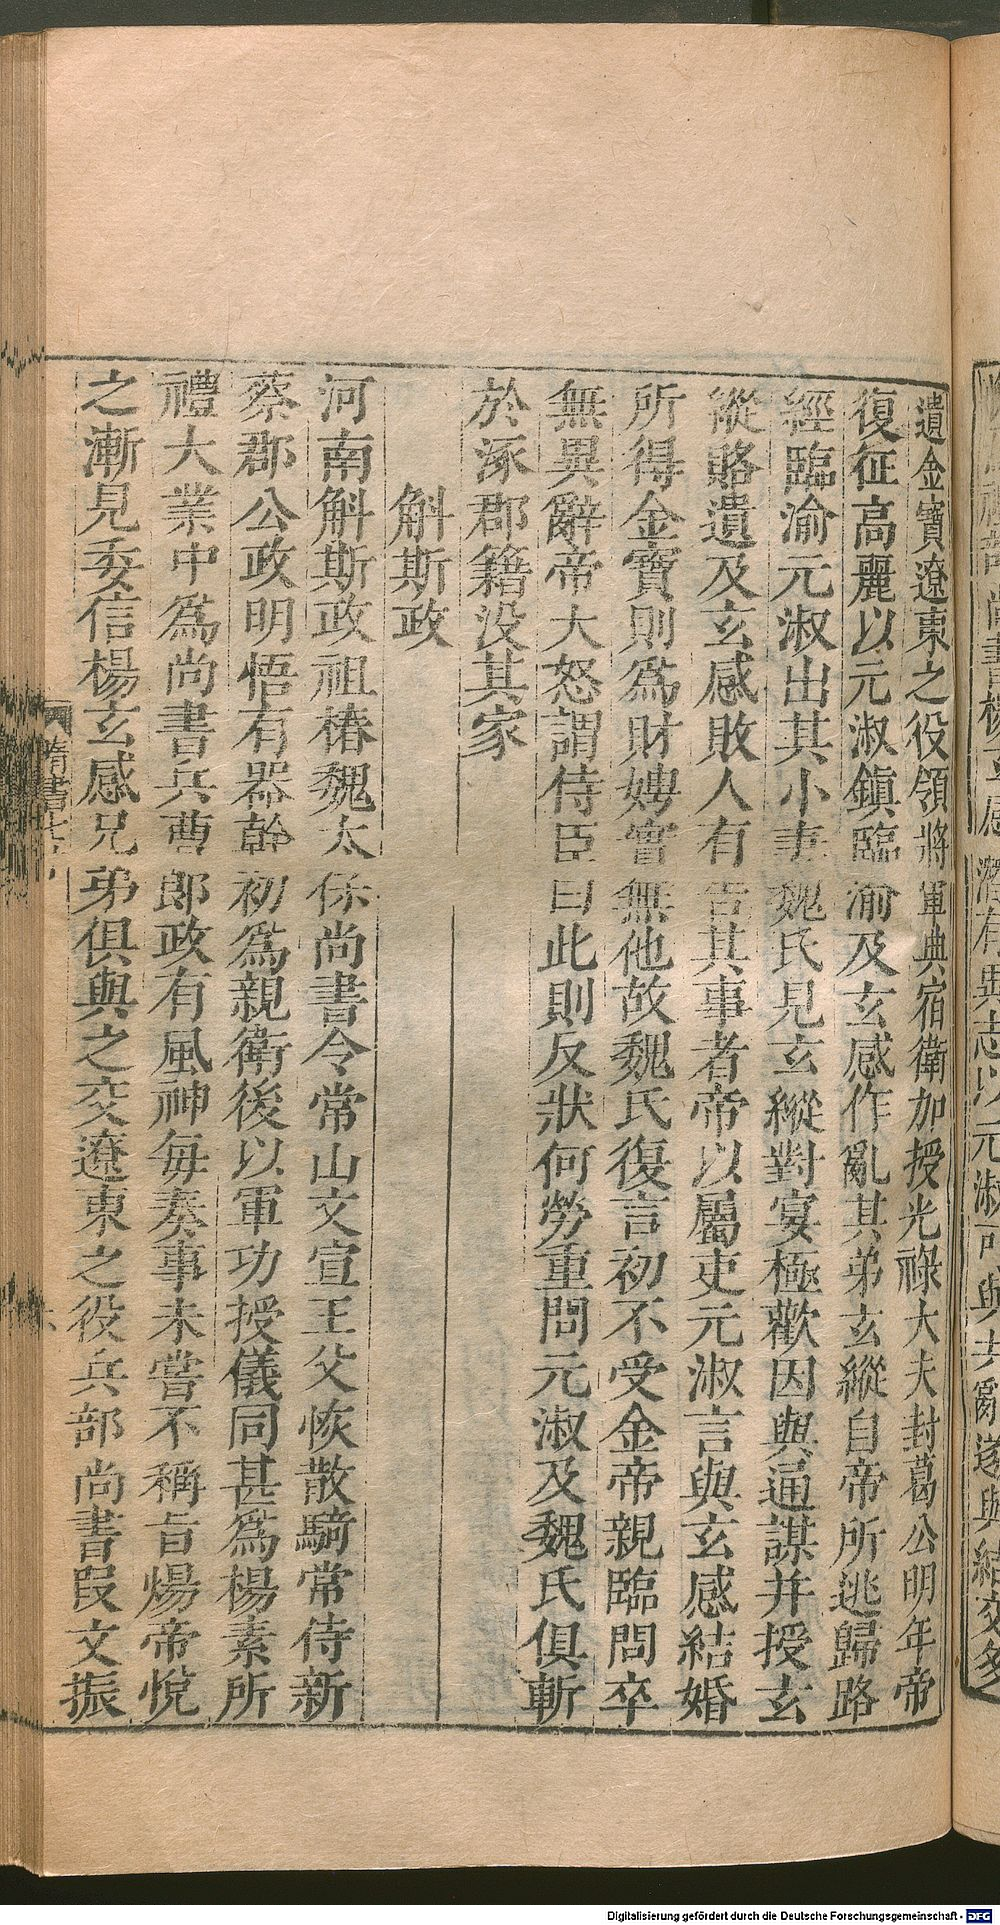 遺金寶遼東之役領將軍典宿衛加授光祿大夫封葛公明年帝
復征高麗以元淑鎮臨渝及玄感作亂其弟玄縱自帝所逃歸路
經臨渝元淑出其小妻魏氏見玄縱對宴極歡因與通謀并授玄
縱賂遺及玄感敗人有告其事者帝以屬吏元淑言與玄感結婚
所得金寶則為財娉實無他故魏氏復言初不受金帝親臨問卒
無異辭帝大怒謂侍臣曰此則反狀何勞重問元淑及魏氏俱斬
於涿郡籍没其家
斛斯政
河南斛斯政祖椿魏太保尚書令常山文宣王父恢散騎常侍新
蔡郡公政明悟有器幹初為親衛後以軍功授儀同甚為楊素所
禮大業中為尚書兵曹郎政有風神每奏事未嘗不稱旨煬帝悅
之漸見委信楊玄感兄弟俱與之交遼東之役兵部尚書段文振
隋書
Digitalisierung gefördert durch die Deutsche Forschungsgemeinschaft - DFG